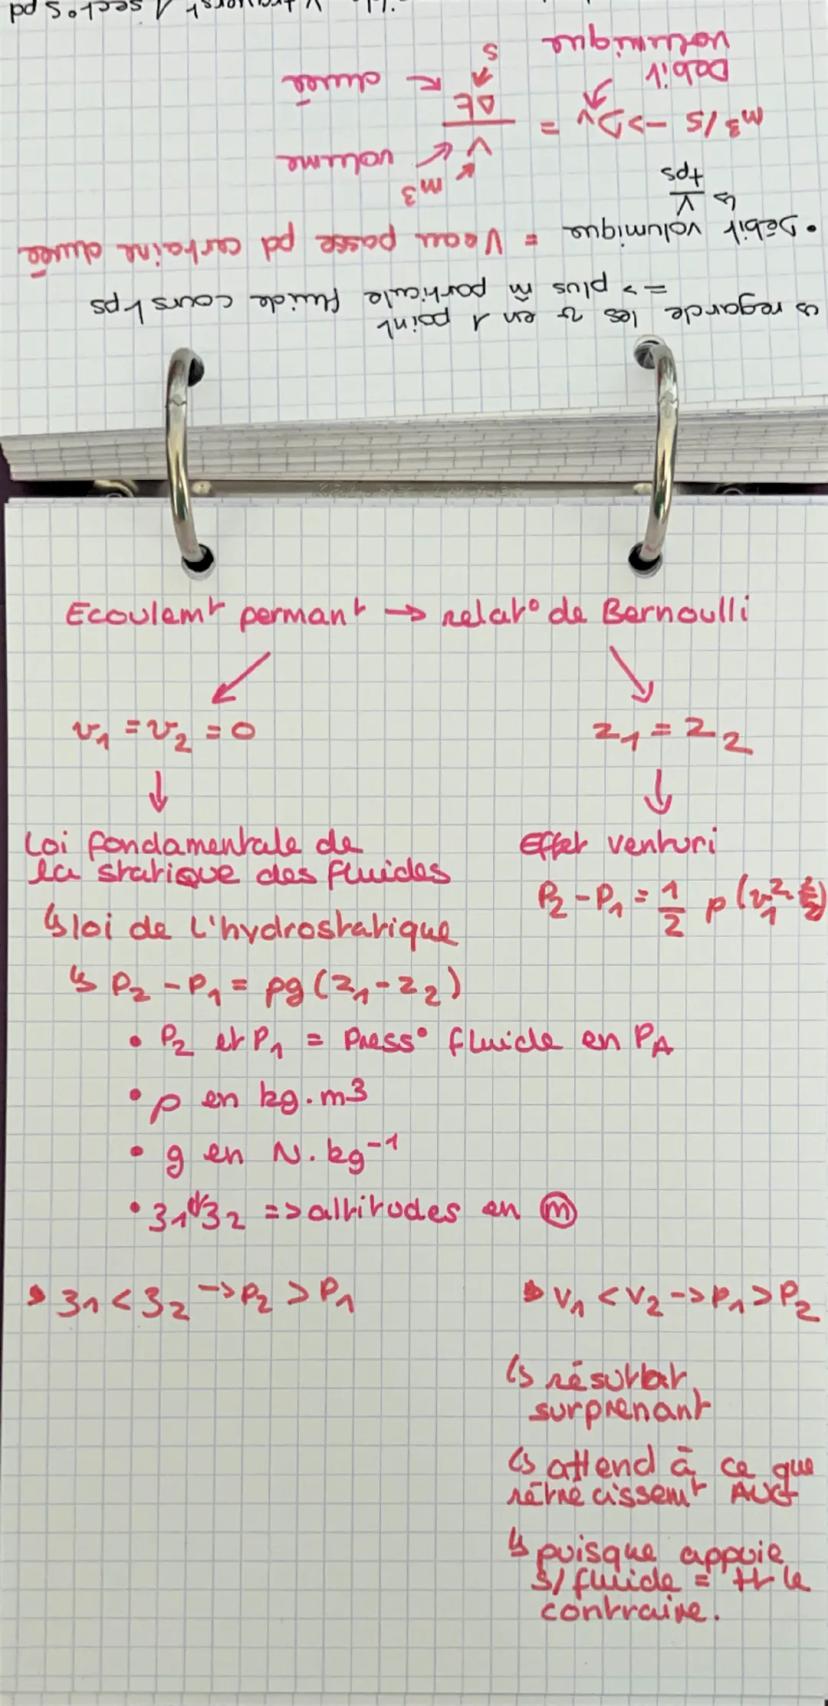 ↳ regarde les v en 1 point
=> plus m̂ particule fluide cours tps
• Débit volumique = Veau passe pd certaine durée
↳ V/tps
m³
m³/s -> Dv = V/Δt
V ← volume
Δt ← durée
s
Débit volumique
Ecoulemt permant → relat° de Bernoulli
v1 = v2 = 0
z1 = z2
Loi fondamentale de
la statique des fluides
↳ loi de l'hydrostatique
↳ P2 - P1 = ρg(z1 - z2)
• P2 et P1 = Press° fluide en PA
• ρ en kg.m3
• g en N.kg-1
• z1 et z2 => altitudes en m
z1 < z2 -> P2 > P1
Effet venturi
P2 - P1 = 1/2 ρ (v1²
V1 < V2 -> P1 > P2
↳ résultat
surprenant
↳ attend à ce que
rétrecissemt AUG
↳ puisque appuie
s/ fluide = tt le
contraire.